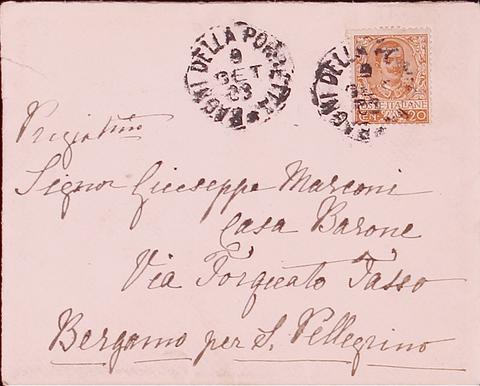 BAGNI DELLA PORRETTA
9
SET
03
BAGNI DELLA
9
POSTE ITALIANE
CEN. 20
Signor Giuseppe Marconi
Casa Barone
Via Torquato Tasso
Bergamo per S. Pellegrino